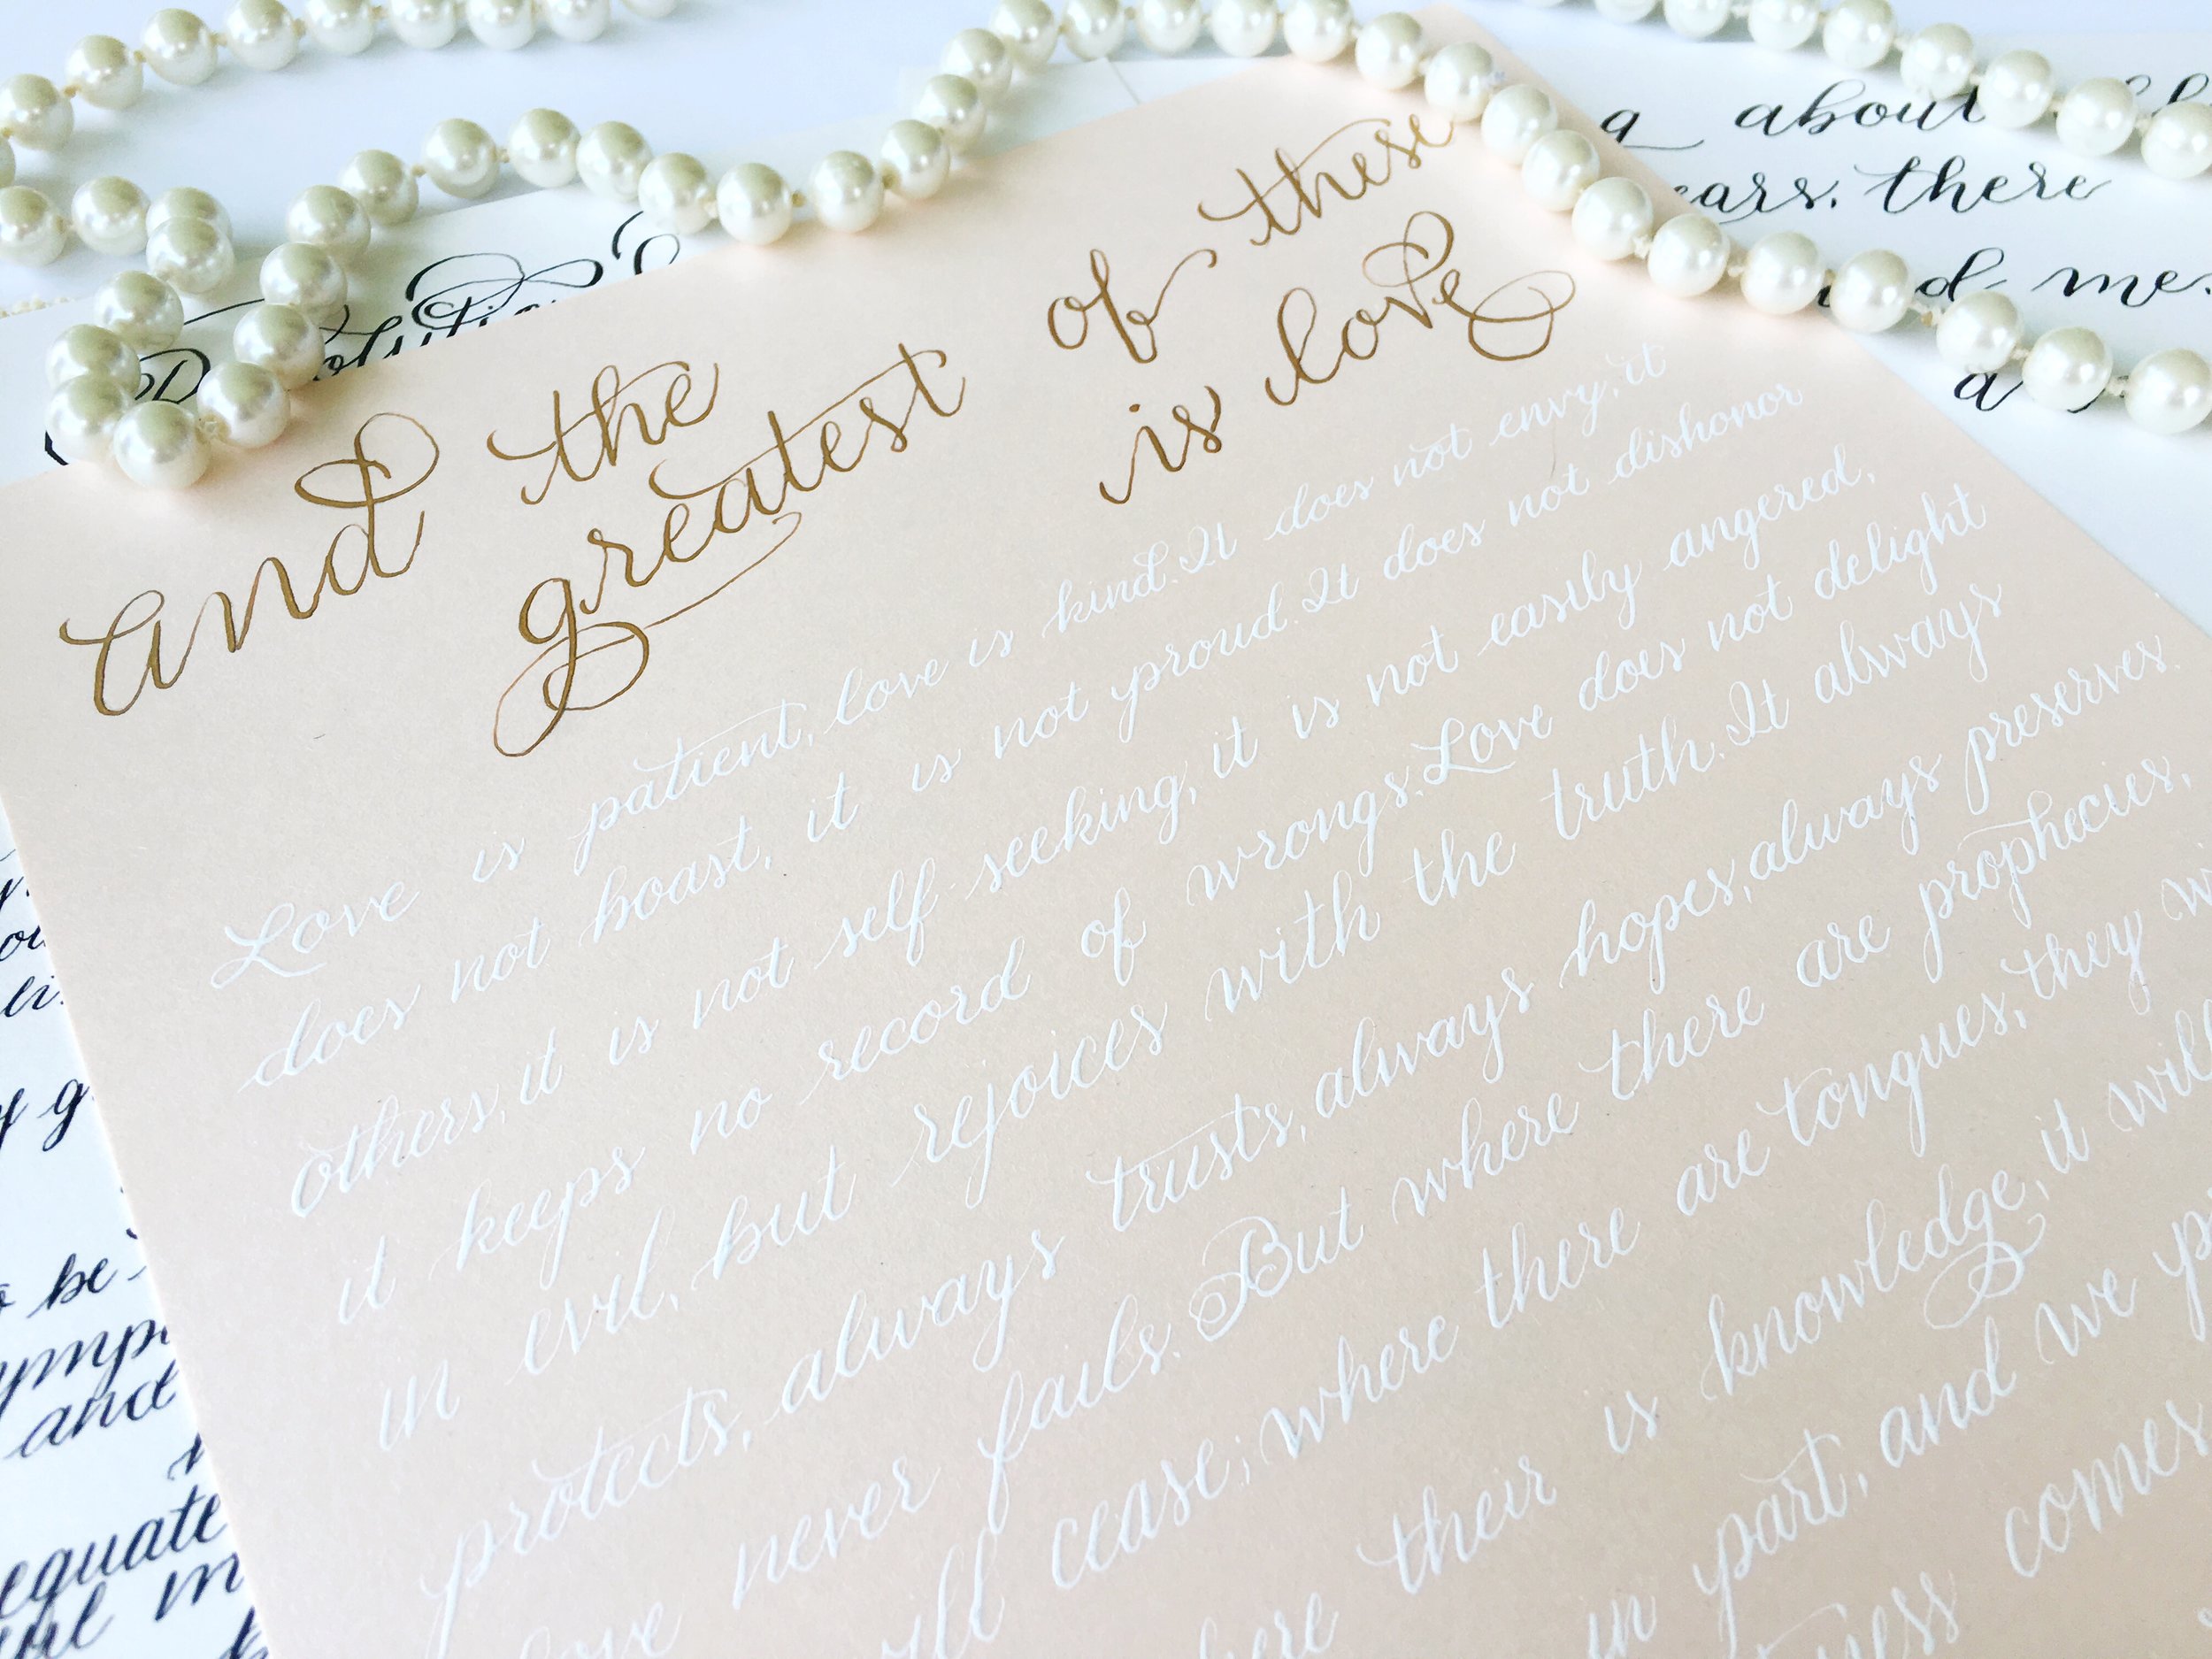 and the
greatest
of these
is love
Love is patient, love is kind. It does not envy, it
does not boast, it is not proud. It does not dishonor
others, it is not self-seeking, it is not easily angered,
it keeps no record of wrongs. Love does not delight
in evil, but rejoices with the truth. It always
protects, always trusts, always hopes, always preserves.
love never fails. But where there are prophecies,
will cease; where there are tongues, they
their is knowledge, it will
in part, and we
comes
about
ears. there
me.
a
y g
be
and
equate